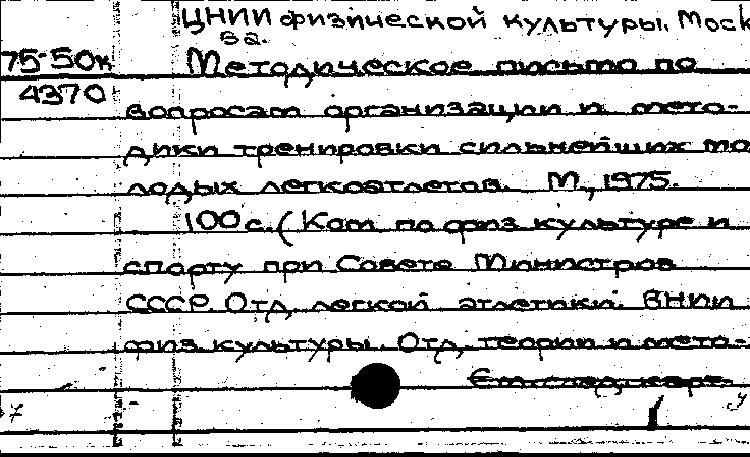 ЦНИИ физической культуры. Моск
ва.
75-50к Методическое письмо по
4370
вопросам организации и мето-
дики тренировки сильнейших мо
лодых легкоатлетов. М., 1975.
100 с. (Ком. по физ. культуре и
спорту при Совете Министров
СССР. Отд. легкой атлетики. ВНИИ
физ. культуры. Отд. теории и мето-
См. след. карт.
7